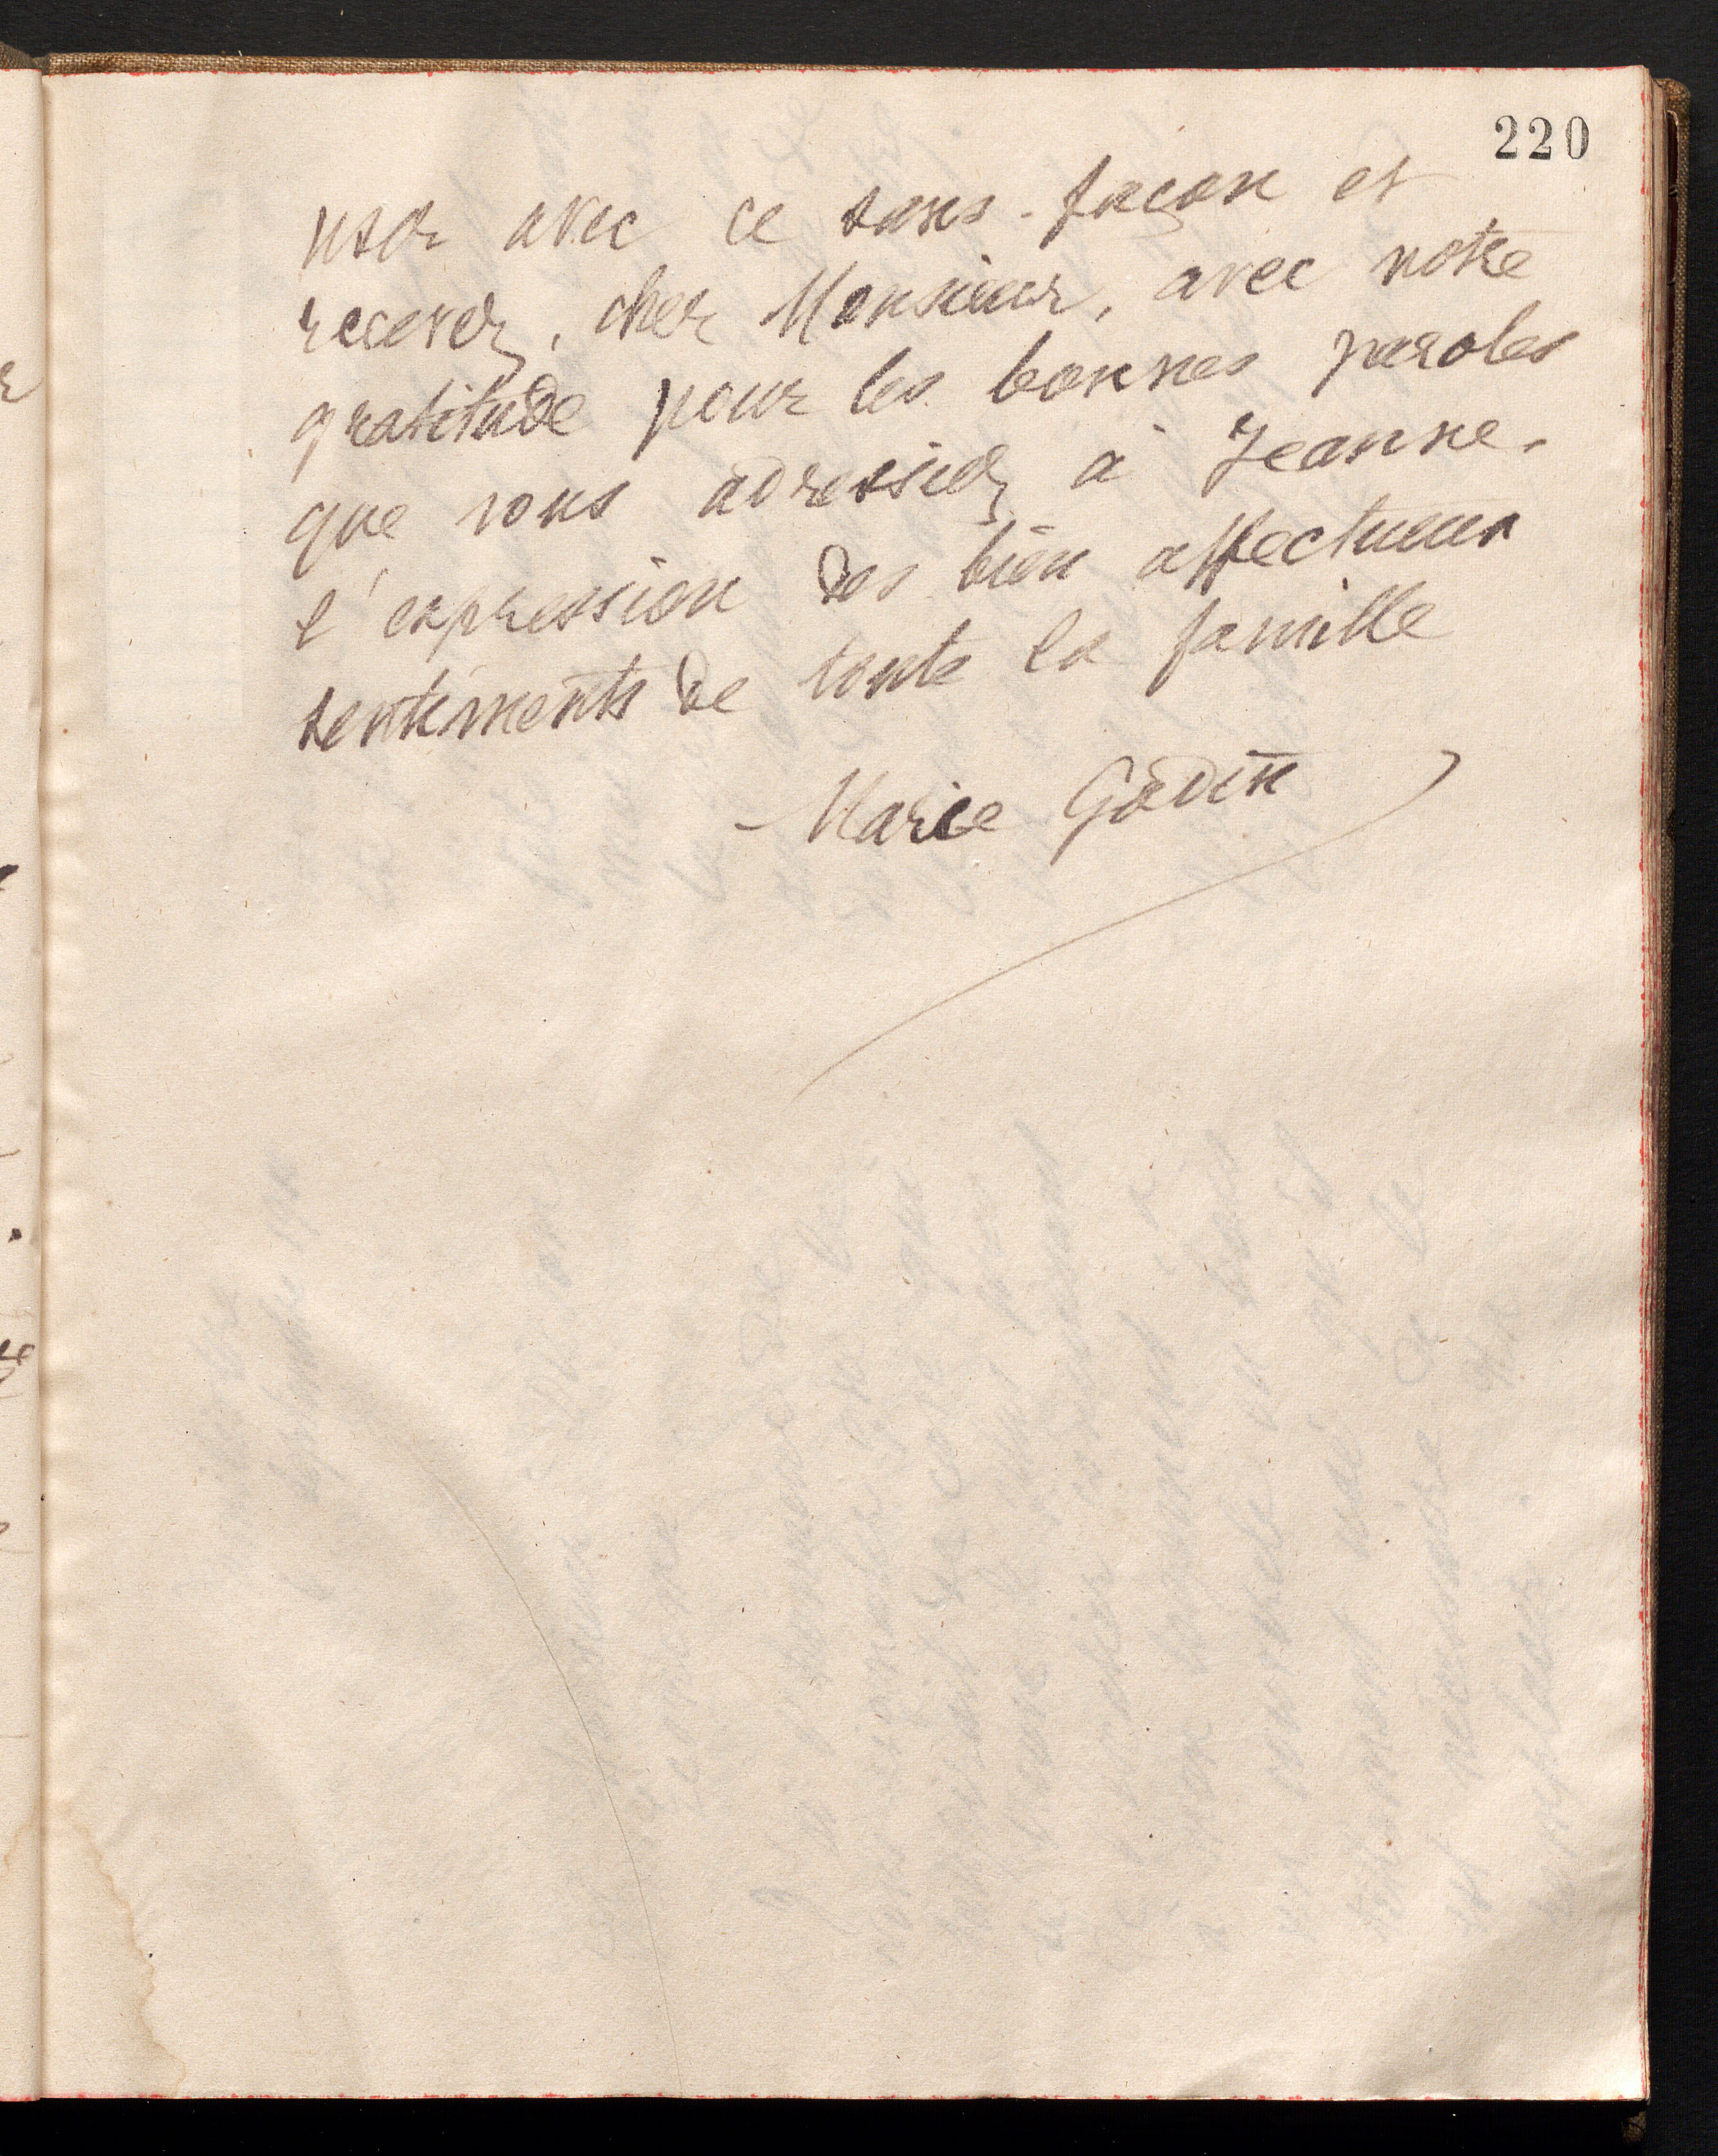 220
user avec ce sans-façon et
recevez, cher Monsieur, avec notre
gratitude pour les bonnes paroles
que vous adressiez à Jeanne,
l'expression des bien affectueux
sentiments de toute la famille
Marie Godin